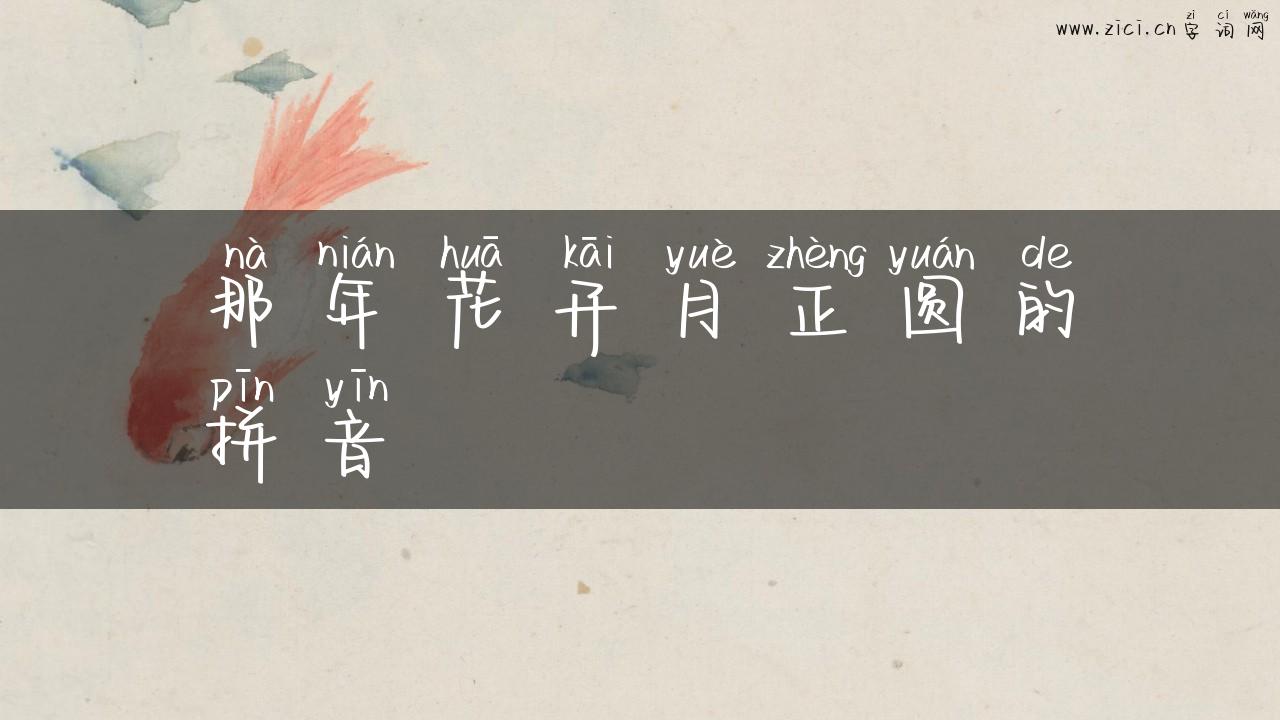 zì cí wǎng
www.zici.cn 字词网
nà nián huā kāi yuè zhèng yuán de
那年花开月正圆的
pīn yīn
拼音